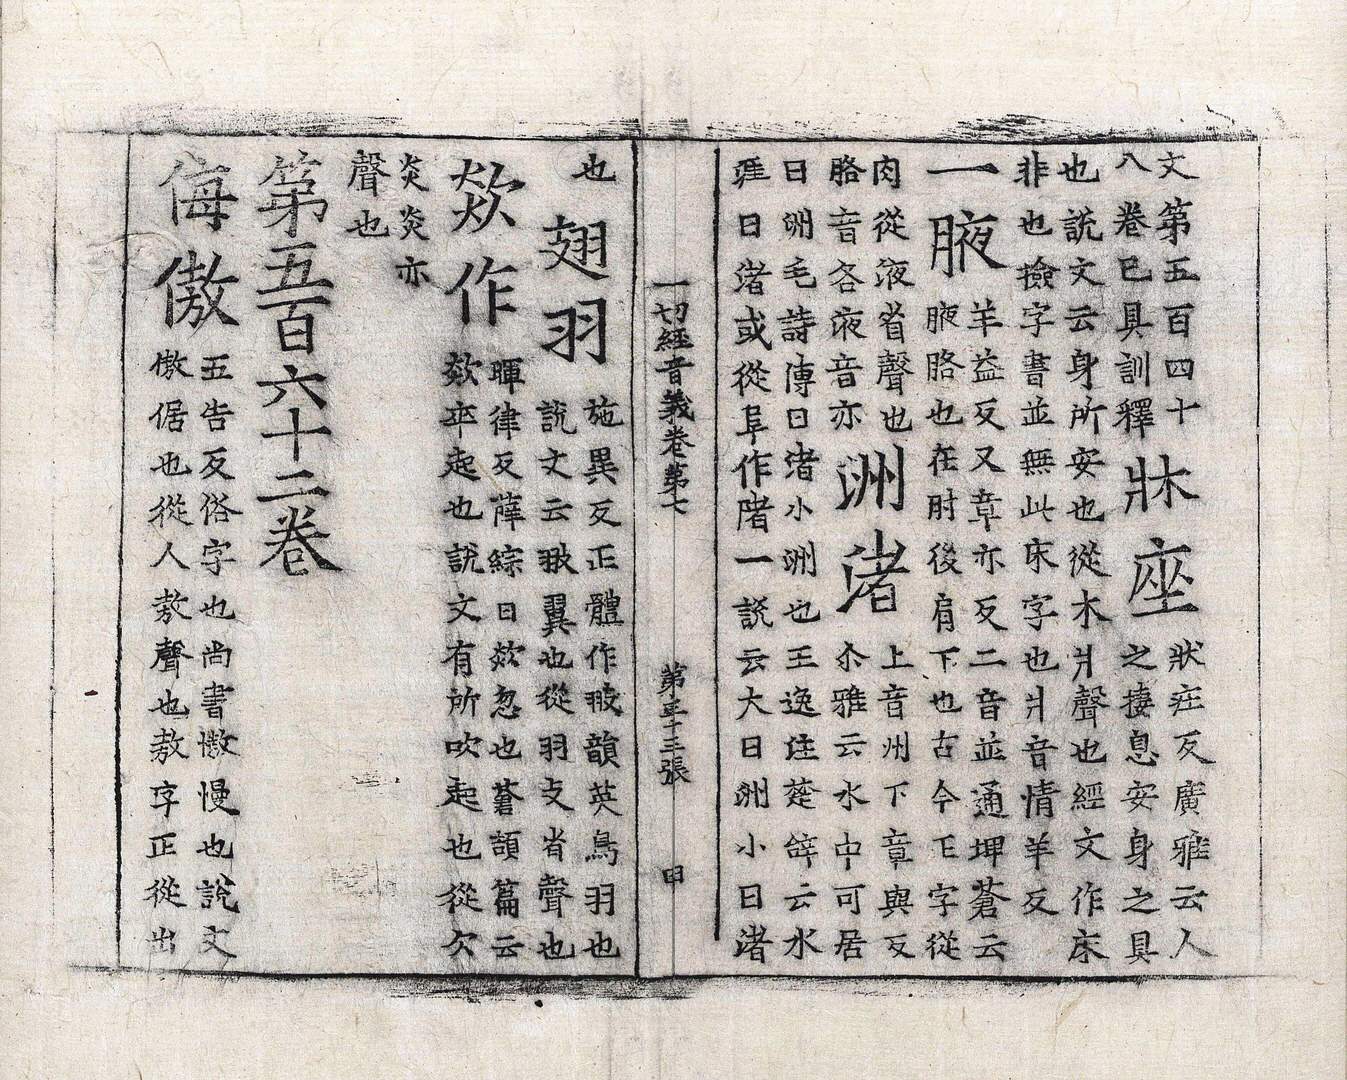 文第五百四十
八卷已具訓釋
牀座
狀莊反廣雅云人
之捿息安身之具
也說文云身所安也從木爿聲也經文作床
非也撿字書並無此床字也爿音情羊反
一腋
羊益反又章亦反二音並通埤蒼云
腋胳也在肘後肩下也古今正字從
肉從液省聲也
胳音各液音亦
洲渚
上音州下章與反
尒雅云水中可居
曰洲毛詩傳曰渚小洲也王逸注楚辝云水
涯曰渚或從阜作陼一說云大曰洲小曰渚
一切經音義卷第七 第三十三張 甲
也
翅羽
施異反正體作翄韻英鳥羽也
說文云翄翼也從羽支省聲也
欻作
暉律反薛綜曰欻忽也蒼頡篇云
欻卒起也說文有所吹起也從欠
炎炎亦
聲也
第五百六十二卷
侮傲
五告反俗字也尚書慠慢也說文
慠倨也從人敖聲也敖字正從出